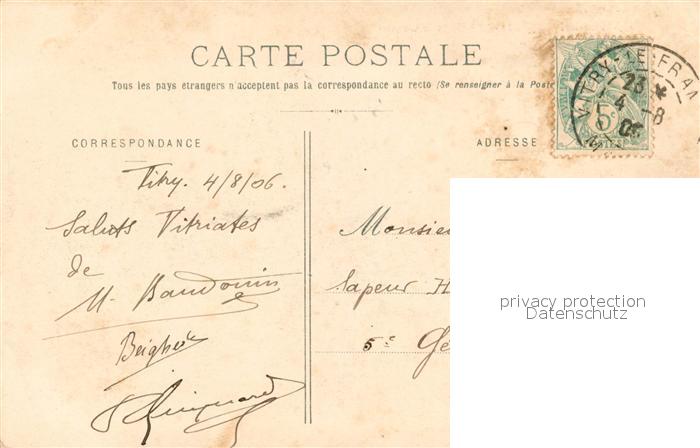 CARTE POSTALE
Tous les pays étrangers n'acceptent pas la correspondance au recto (Se renseigner à la Poste
CORRESPONDANCE
ADRESSE
5c
VITRY-LE-FRAN
23
4 -8
06
Vitry. 4/8/06.
Saluts Vitriates
de
M. Baudouin
Monsie
Sapeur H
5e Gé
privacy protection
Datenschutz